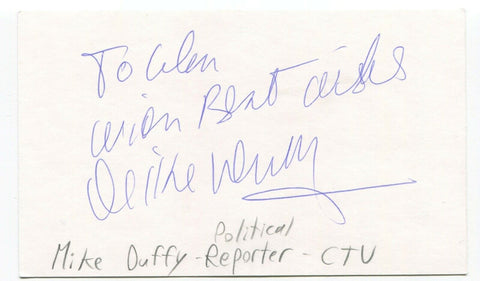 To Glen
with Best wishes
Mike Duffy
Political
Mike Duffy - Reporter - CTV